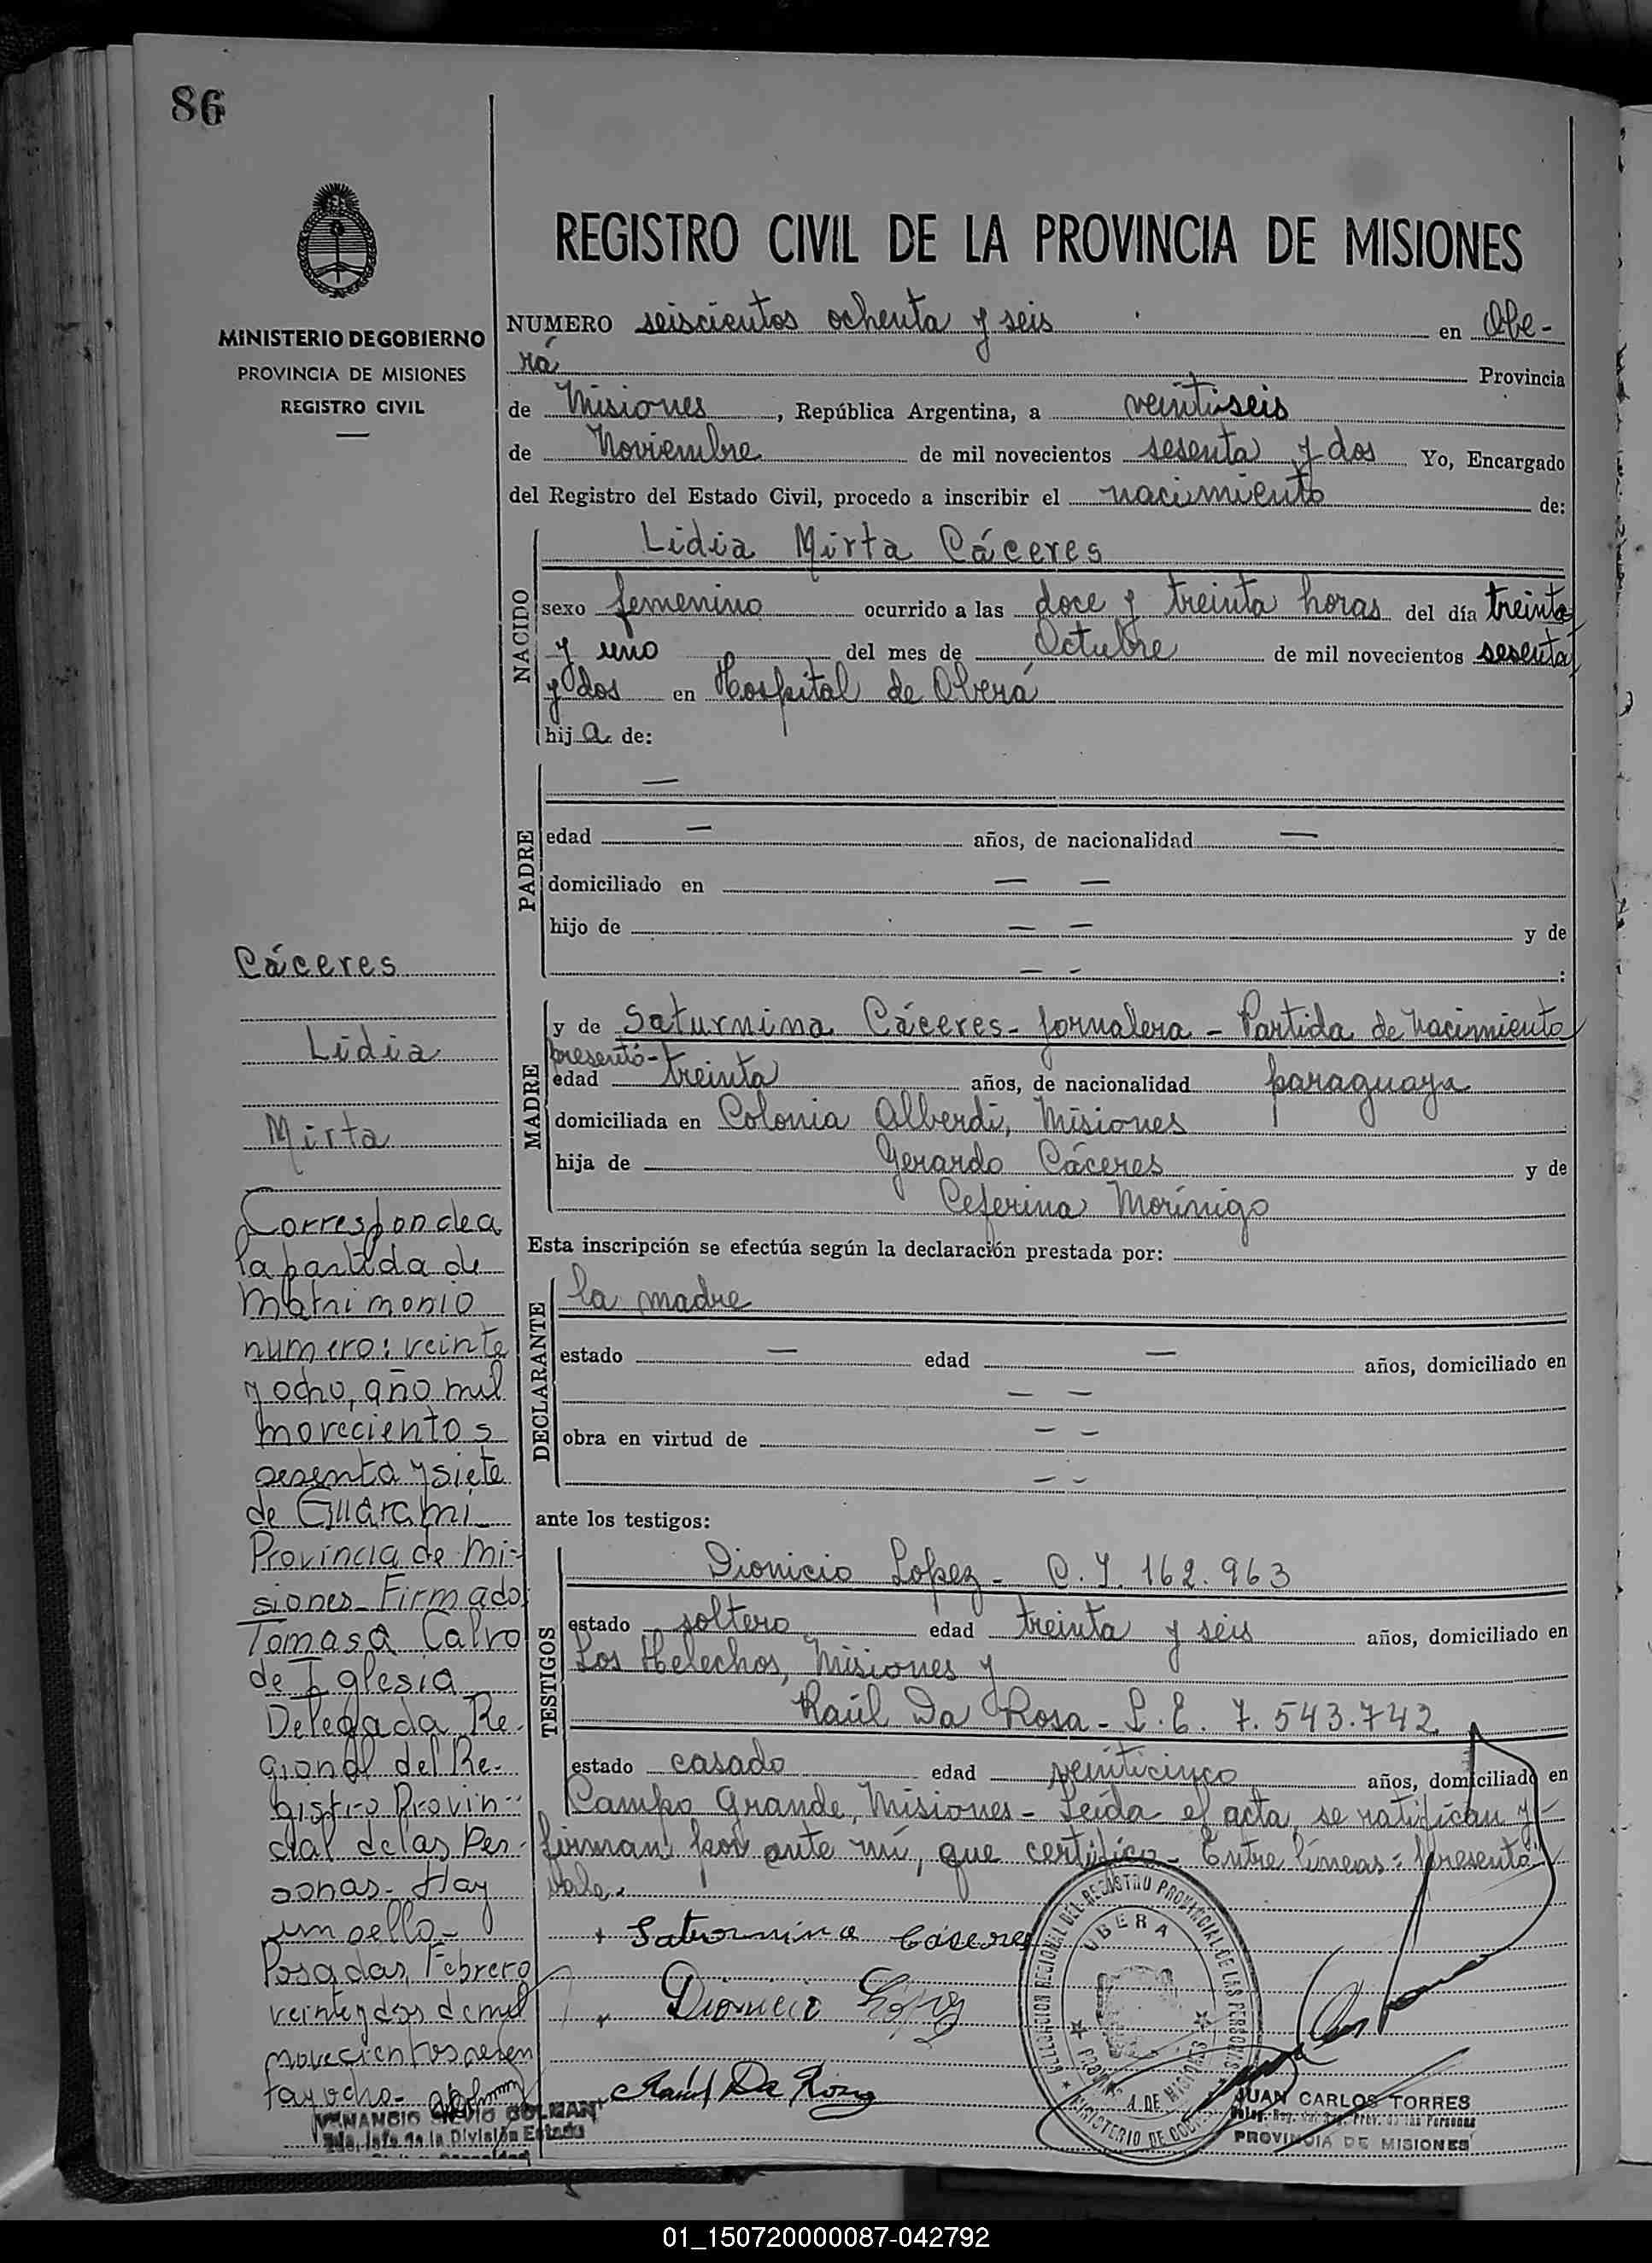 86
REGISTRO CIVIL DE LA PROVINCIA DE MISIONES
MINISTERIO DE GOBIERNO
PROVINCIA DE MISIONES
REGISTRO CIVIL
NUMERO seiscientos ochenta y seis en Obe-
rá Provincia
de Misiones, República Argentina, a veintiseis
de Noviembre de mil novecientos sesenta y dos Yo, Encargado
del Registro del Estado Civil, procedo a inscribir el nacimiento de:
NACIDO
Lidia Mirta Cáceres
sexo femenino ocurrido a las doce y treinta horas del día treinta
y uno del mes de Octubre de mil novecientos sesenta
y dos en Hospital de Oberá
hija de:
PADRE
—
edad — años, de nacionalidad —
domiciliado en — —
hijo de — — y de
— - :
MADRE
y de Saturnina Cáceres - Jornalera - Partida de Nacimiento
presentó-
edad treinta años, de nacionalidad paraguaya
domiciliada en Colonia Alberdi, Misiones
hija de Gerardo Cáceres y de
Ceferina Morínigo
Esta inscripción se efectúa según la declaración prestada por:
DECLARANTE
la madre
estado — edad — años, domiciliado en
— —
obra en virtud de — —
— —
ante los testigos:
TESTIGOS
Dionicio Lopez - C.I. 162.963
estado soltero edad treinta y seis años, domiciliado en
Los Helechos, Misiones y
Raúl Da Rosa - L.E. 7.543.742
estado casado edad veinticinco años, domiciliado en
Campo Grande, Misiones - Leída el acta, se ratifican y
firman por ante mí, que certifico - Entre líneas: "presentó"
Vale.
+ Saturnina Cáceres
Dionicio López
Raúl Da Rosa
Cáceres
Lidia
Mirta
Corresponde a
la partida de
Matrimonio
numero: veinte
y ocho, año mil
novecientos
sesenta y siete
de Guaraní
Provincia de Mi-
siones - Firmado
Tomasa Calvo
de Iglesia
Delegada Re-
gional del Re-
gistro Provin-
cial de las Per-
sonas - Hay
un sello -
Posadas, Febrero
veinte y dos de mil
novecientos seten
ta y ocho -
DELEGACION REGIONAL DEL REGISTRO PROVINCIAL DE LAS PERSONAS
OBERA
PROVINCIA DE MISIONES
MINISTERIO DE GOBIERNO
JUAN CARLOS TORRES
Deleg. Reg. del Reg. Prov. de las Personas
PROVINCIA DE MISIONES
VENANCIO
2do. Jefe de la División Estado
01_150720000087-042792